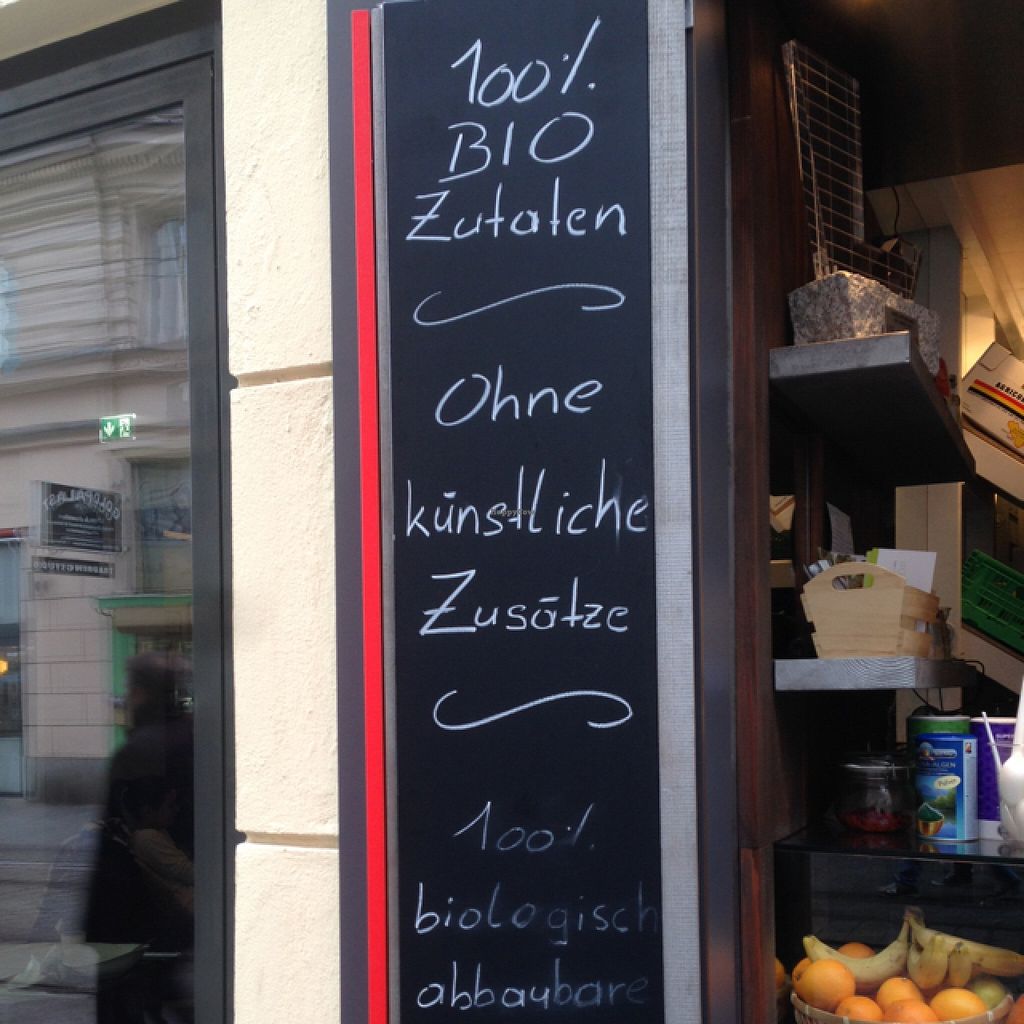 100%
BIO
Zutaten
Ohne
künstliche
Zusätze
100%
biologisch
abbaubare
happycow